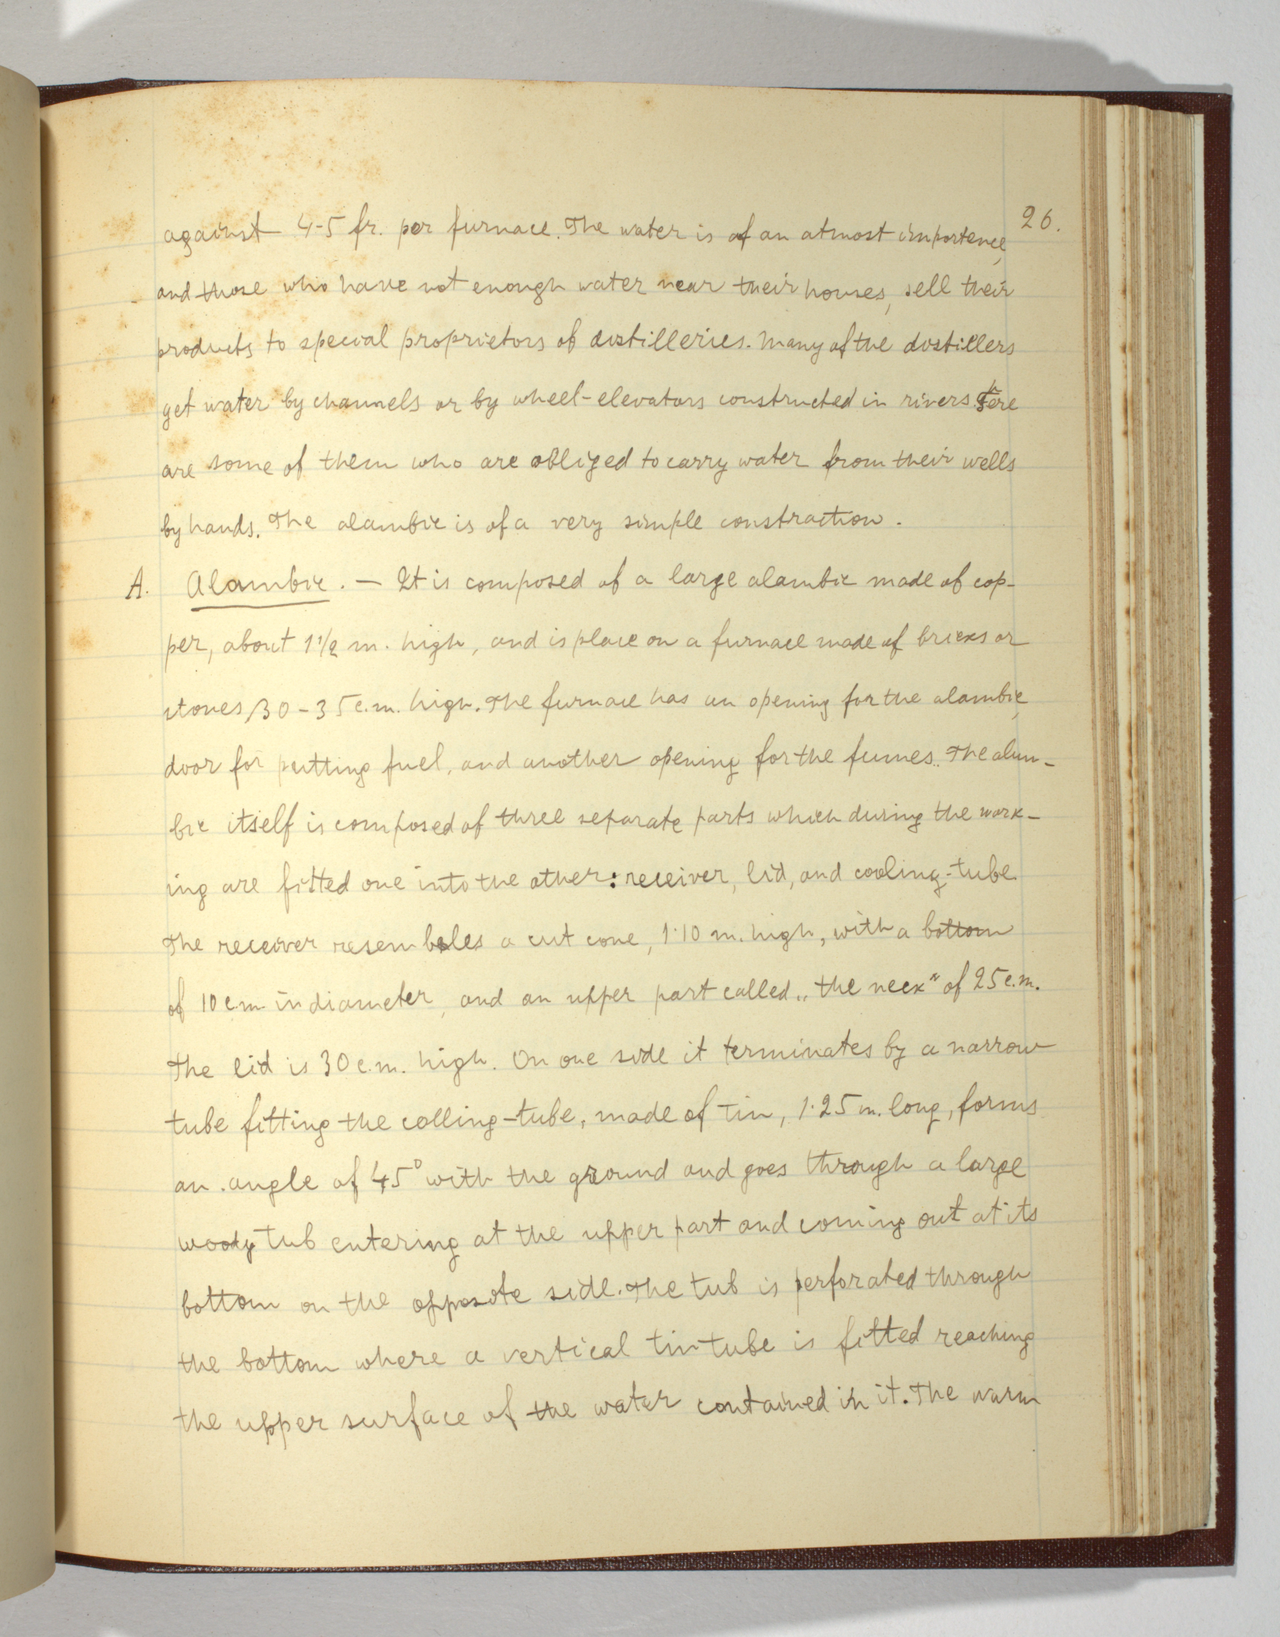 26.
against 4-5 fr. per furnace. The water is of an atmost importence,
and those who have not enough water near their houses, sell their
products to special proprietors of distilleries. Many of the distillers
get water by channels or by wheel-elevators constructed in rivers
are some of them who are obliged to carry water from their wells
by hands. The alambic is of a very simple constraction.
A. Alambic. — It is composed of a large alambic made of cop-
per, about 1 1/2 m. high, and is place on a furnace made of bricks or
stones, 30-35 c.m. high. The furnace has an opening for the alambic,
door for putting fuel, and another opening for the fumes. The alam-
bic itself is composed of three separate parts which during the work-
ing are fitted one into the other: receiver, lid, and cooling-tube.
The receiver resembles a cut cone, 1·10 m. high, with a bottom
of 10 c.m in diameter, and an upper part called „the neck" of 25 c.m.
The lid is 30 c.m. high. On one side it terminates by a narrow
tube fitting the colling-tube, made of tin, 1·25 m. long, forms
an angle of 45° with the ground and goes through a large
woody tub entering at the upper part and coming out at its
bottom on the opposite side. The tub is perforated through
the bottom where a vertical tin tube is fitted reaching
the upper surface of the water contained in it. The warm